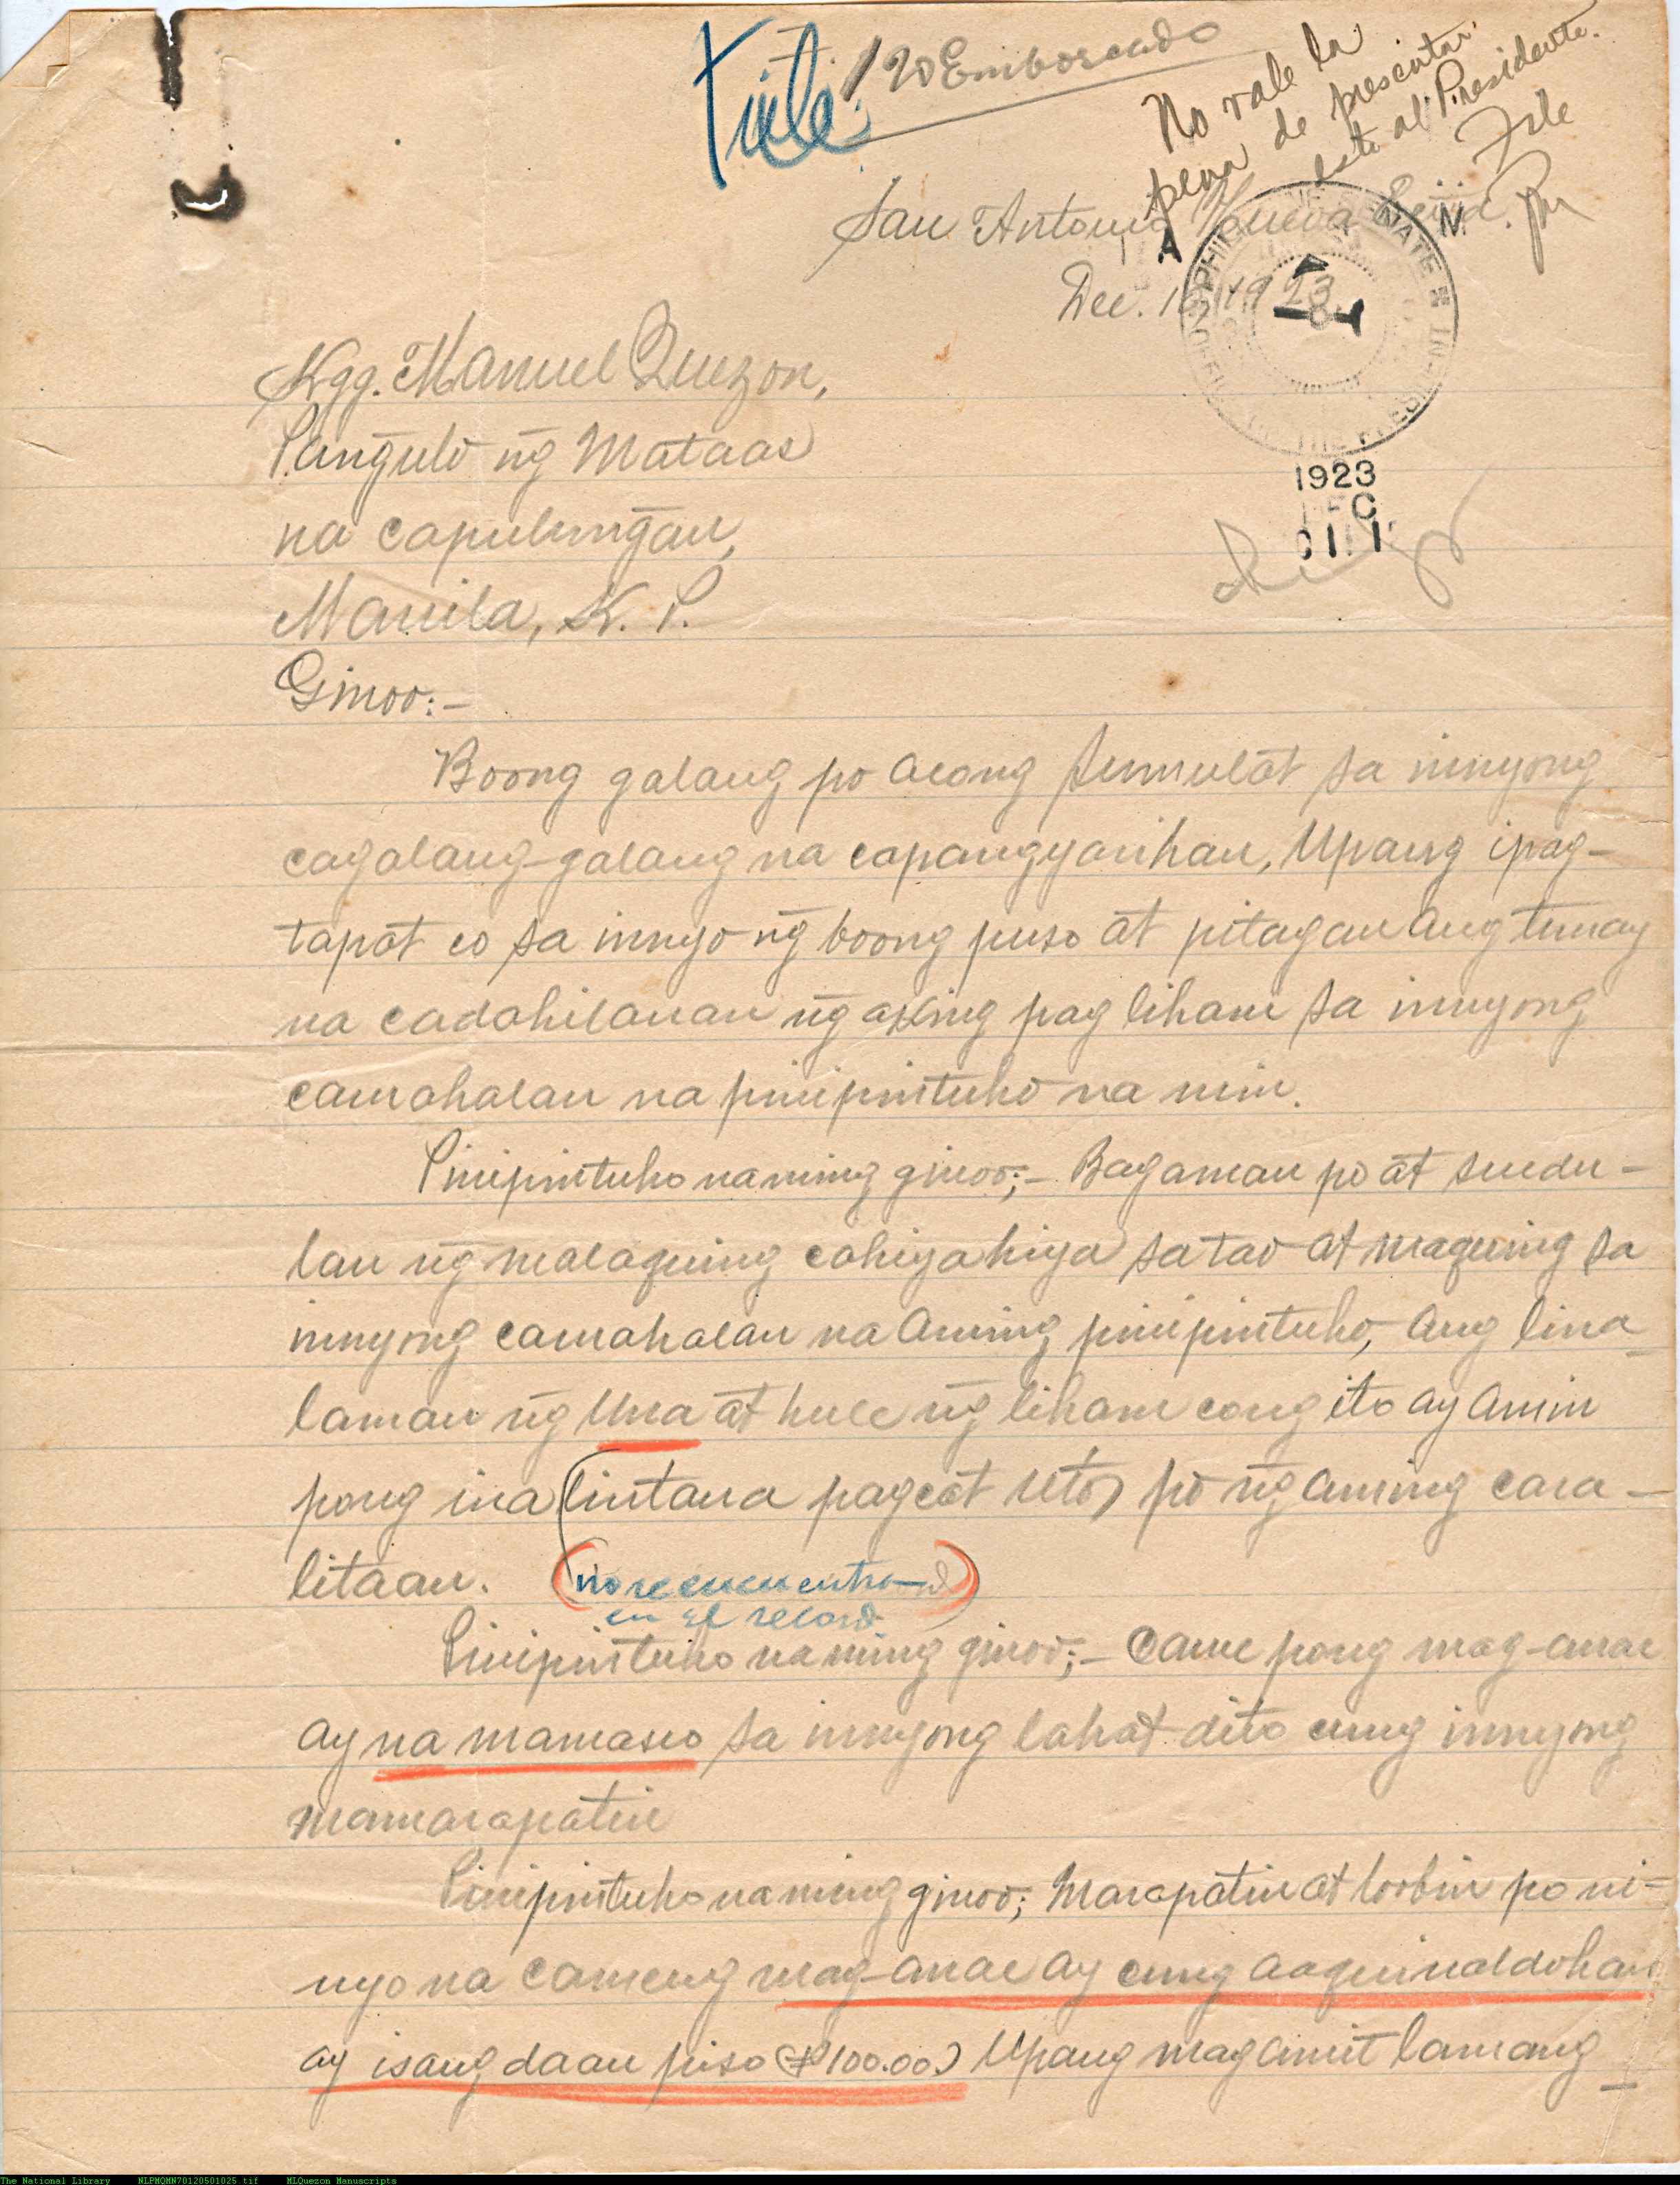 File
120 Emboscado
No vale la
pena de presentar
esto al Presidente.
File
San Antonio Nueva Ecija.
Dec. 1923
PHILIPPINE SENATE
THE PRES
1923
DEC
Kgg. Manuel Quezon,
Pangulo ng̃ Mataas
na capulung̃an,
Manila, K. P.
Ginoo:-
Boong galang po acong sumulat sa innyong
cagalang-galang na capangyarihan, Upang ipag-
tapat co sa innyo ng̃ boong puso at pitagan ang tunay
na cadahilanan ng̃ aking pag liham sa innyong
camahalan na pinipintuho na min.
Pinipintuho naming ginoo;- Bagaman po at sucdu-
lan ng̃ malaquing cahiyahiya sa tao at maguing sa
innyong camahalan na Aming pinipintuho, Ang lina-
laman ng̃ Una at hule ng̃ liham cong ito ay Amin
pong ina lintana pagcat Utos po ng̃ aming cara-
litaan.
(no se encuentra
en el record)
Pinipintuho naming ginoo;- Came pong mag-anac
Ay na mamasco sa innyong lahat dito cung innyong
mamarapatin
Pinipintuho naming ginoo; Marapatin at loobin po ni-
nyo na cameng mag-anac ay cung aaguinaldohan
ay isang daan piso (₱100.00) Upang magamit lamang
The National Library NLPMQMN70120501025.tif MLQuezon Manuscripts